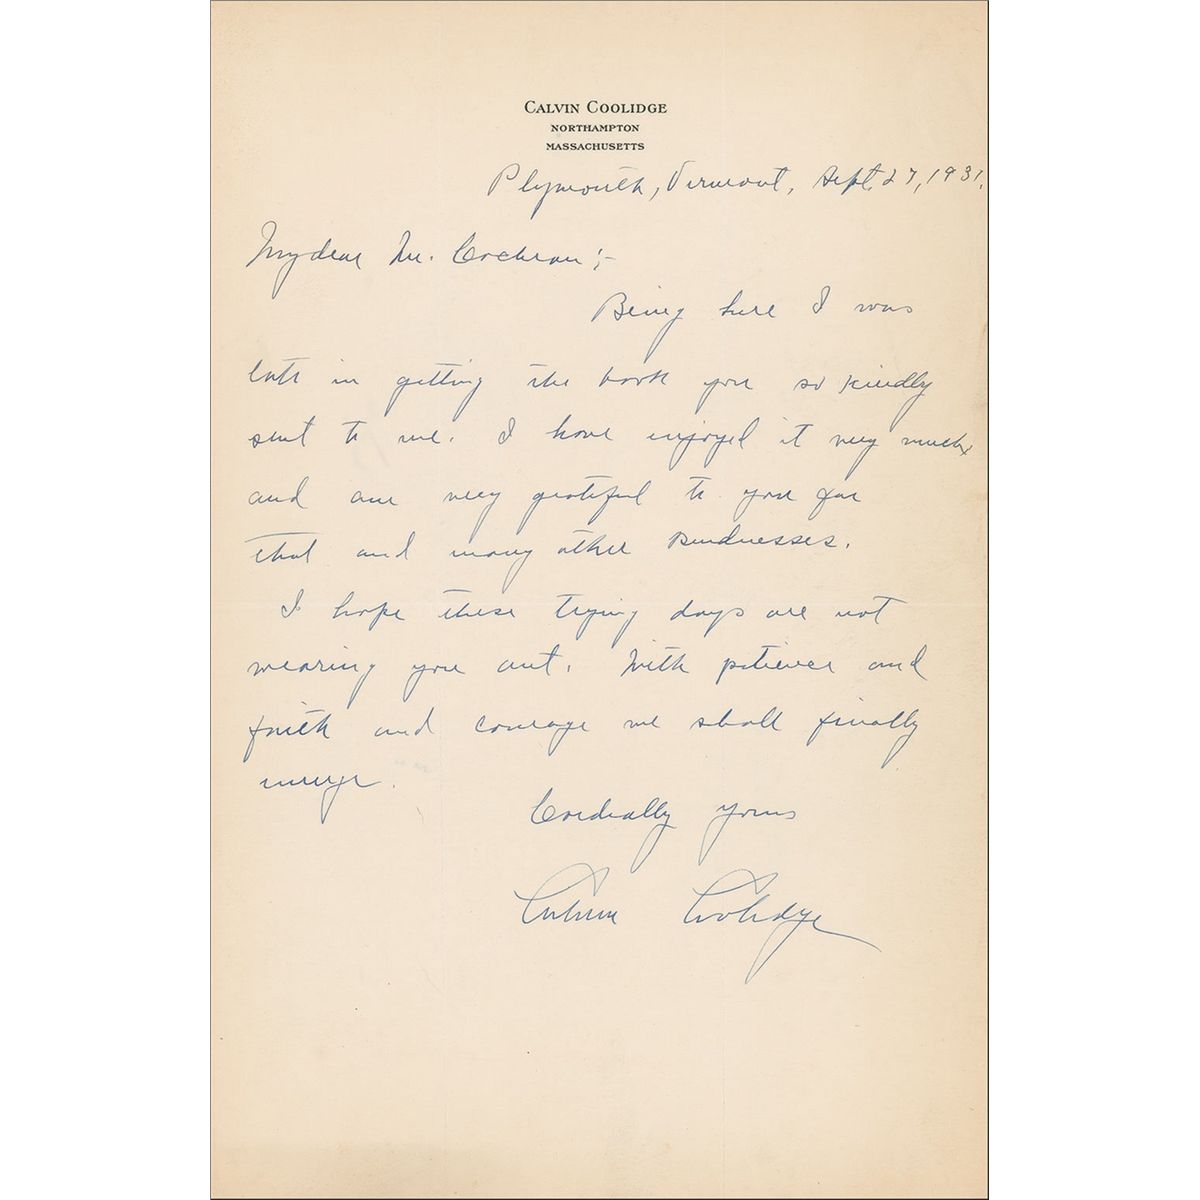 CALVIN COOLIDGE
NORTHAMPTON
MASSACHUSETTS
Plymouth, Vermont, Sept. 27, 1931.
My dear Mr. Cochran;-
Being here I was
late in getting the book you so kindly
sent to me. I have enjoyed it very much
and am very grateful to you for
that and many other kindnesses.
I hope these trying days are not
wearing you out. With patience and
faith and courage we shall finally
emerge.
Cordially yours
Calvin Coolidge